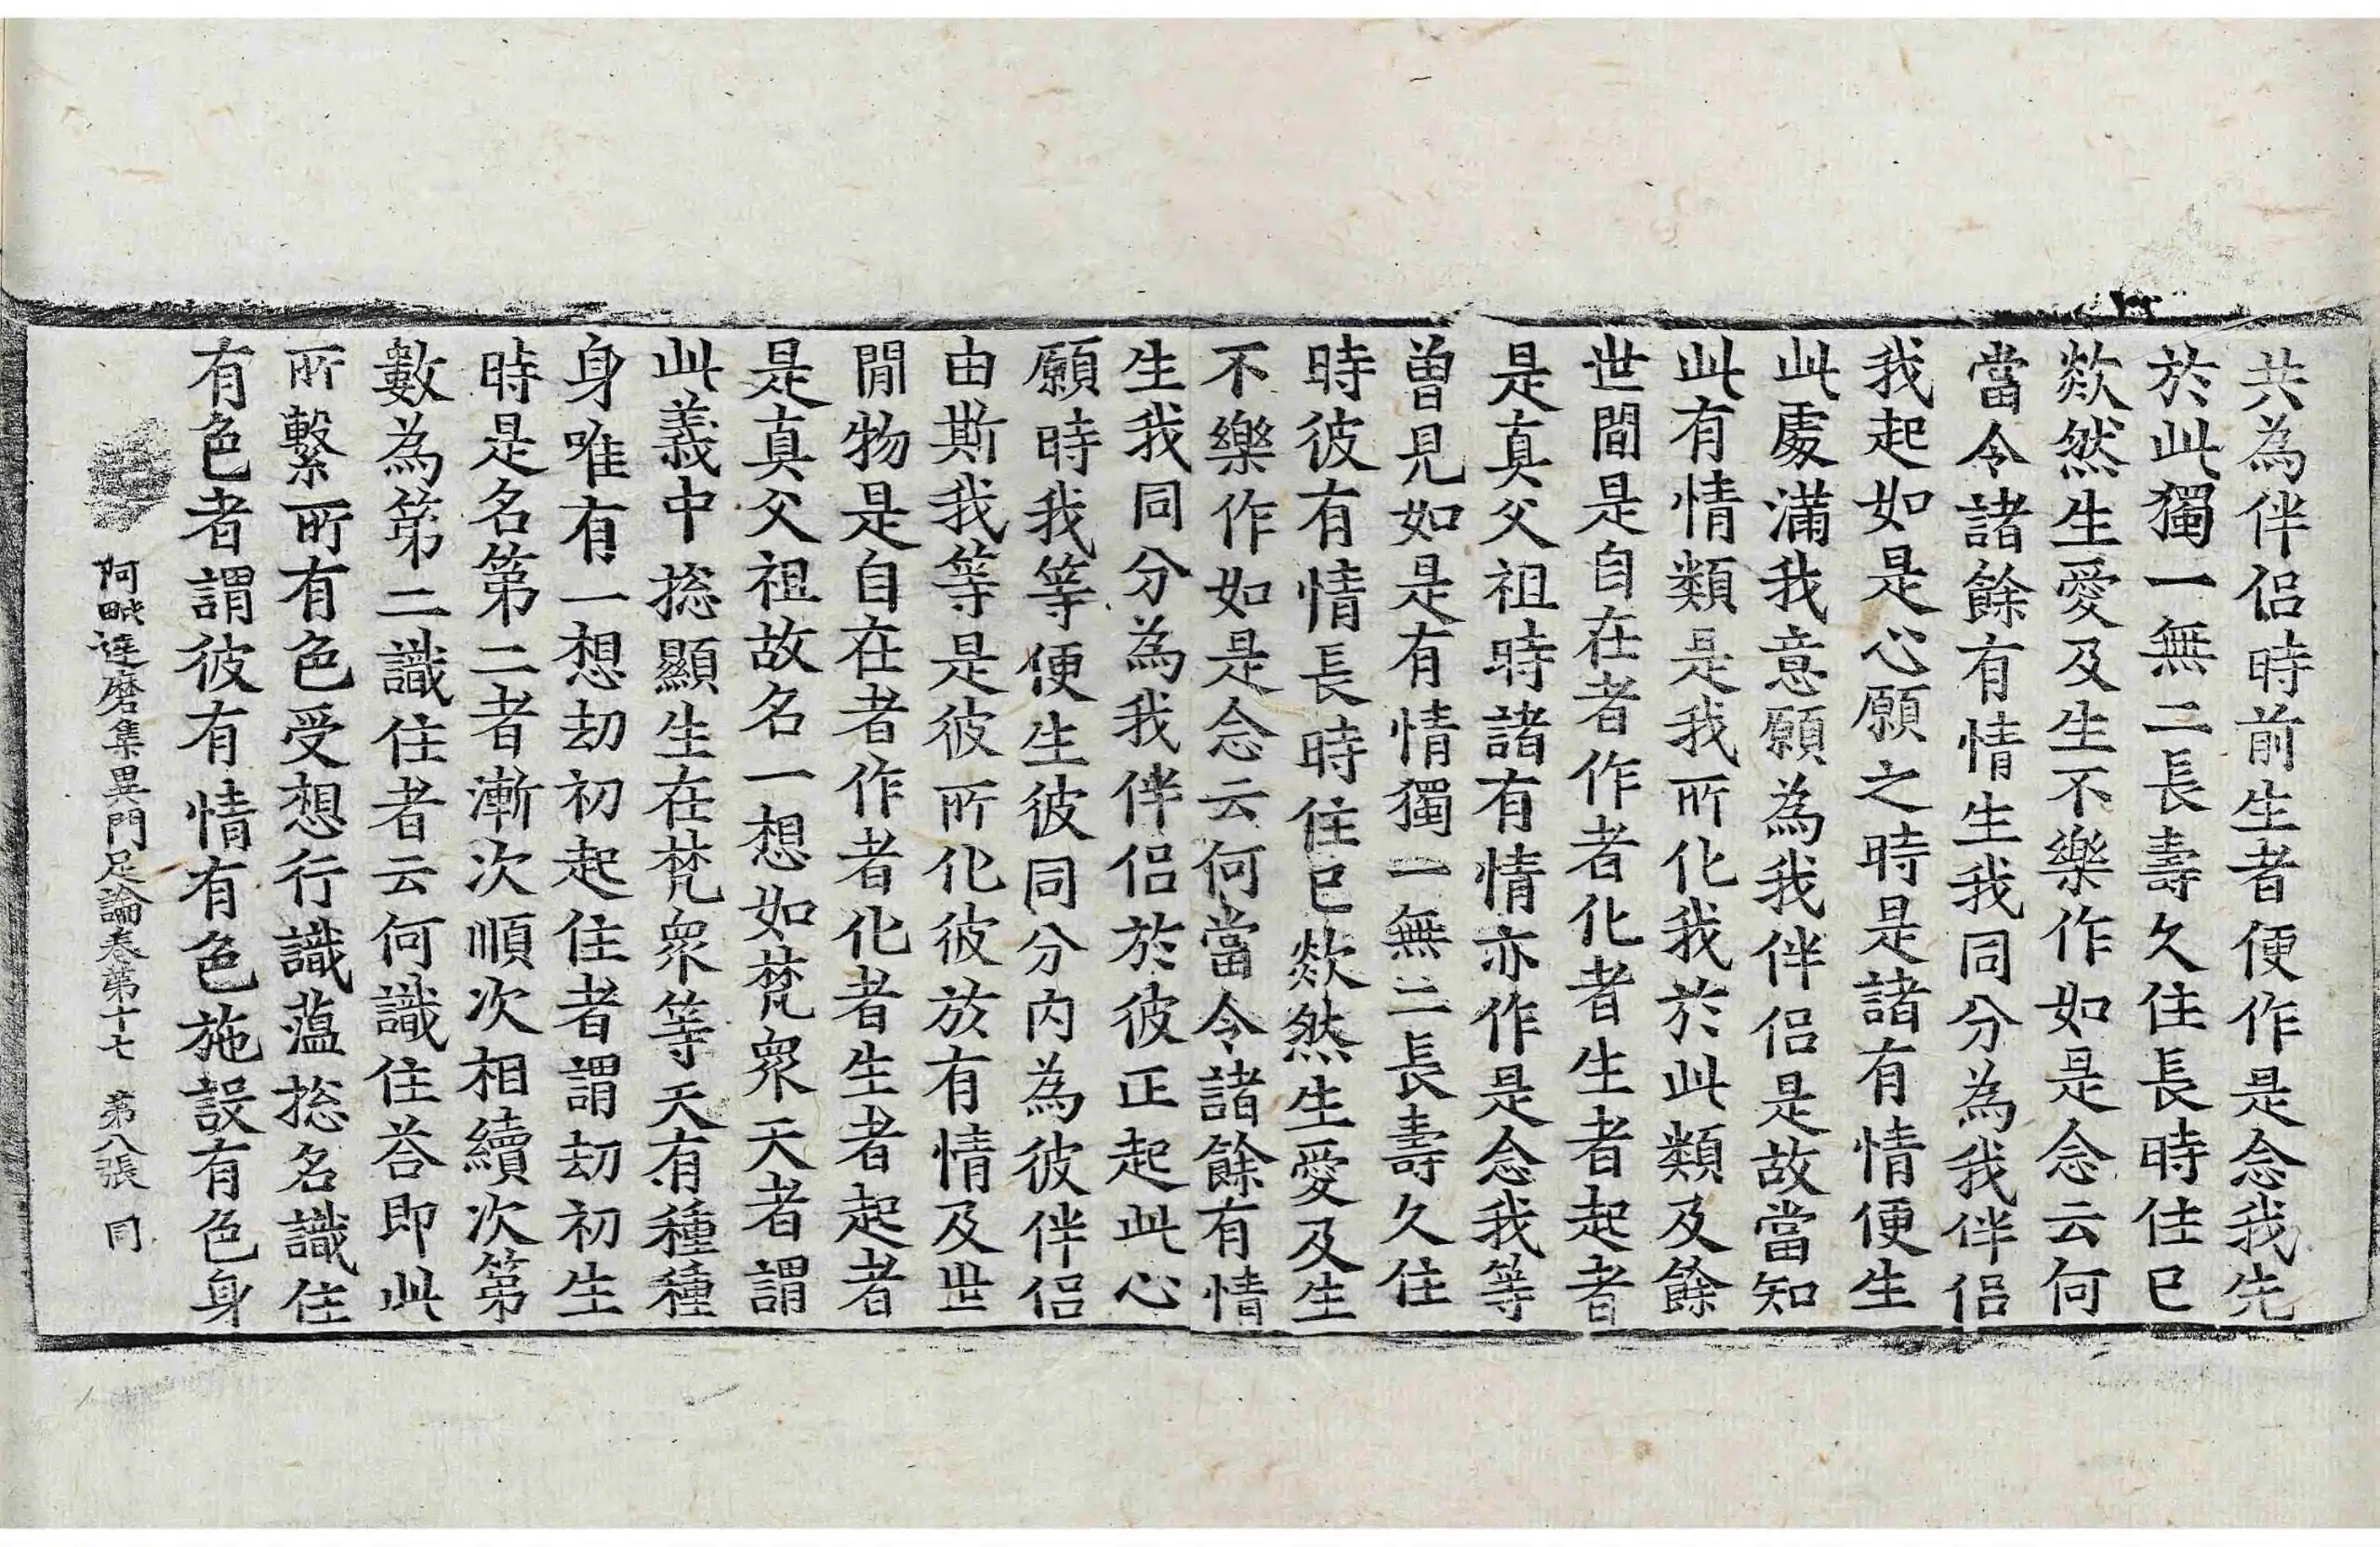 共為伴侶時前生者便作是念我先
於此獨一無二長壽久住長時住已
欻然生愛及生不樂作如是念云何
當令諸餘有情生我同分為我伴侶
我起如是心願之時是諸有情便生
此處滿我意願為我伴侶是故當知
此有情類是我所化我於此類及餘
世間是自在者作者化者生者起者
是真父祖時諸有情亦作是念我等
曽見如是有情獨一無二長壽久住
時彼有情長時住已欻然生愛及生
不樂作如是念云何當令諸餘有情
生我同分為我伴侶於彼正起此心
願時我等便生彼同分內為彼伴侶
由斯我等是彼所化彼於有情及世
間物是自在者作者化者生者起者
是真父祖故名一想如梵眾天者謂
此義中捴顯生在梵眾等天有種種
身唯有一想刧初起住者謂刧初生
時是名第二者漸次順次相續次第
數為第二識住者云何識住荅即此
所繫所有色受想行識蘊捴名識住
有色者謂彼有情有色施設有色身
阿毗達磨集異門足論卷第十七 第八張 同